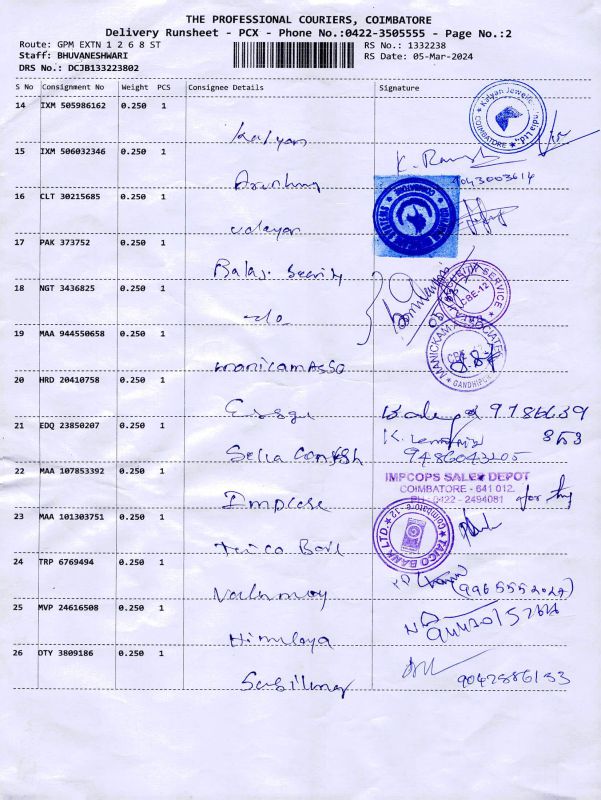 THE PROFESSIONAL COURIERS, COIMBATORE
Delivery Runsheet - PCX - Phone No.:0422-3505555 - Page No.:2
Route: GPM EXTN 1 2 6 8 ST RS No.: 1332238
Staff: BHUVANESHWARI RS Date: 05-Mar-2024
DRS No.: DCJB133223802
S No Consignment No Weight PCS Consignee Details Signature
14 IXM 505986162 0.250 1
Kalyan
Kalyan Jewellers India Ltd. COIMBATORE
15 IXM 506032346 0.250 1
K. Ramesh
9043003614
16 CLT 30215685 0.250 1
Udayan
COIMBATORE
17 PAK 373752 0.250 1
Balaji Security
SECURITY SERVICE CBE-12
18 NGT 3436825 0.250 1
-do-
19 MAA 944550658 0.250 1
Manicam Asso
MANICKAM ASSOCIATES CBE GANDHIPUR
20 HRD 20410758 0.250 1
9786639
853
21 EDQ 23850207 0.250 1
Selia
K.
9486043205
22 MAA 107853392 0.250 1
IMPCOPS SALES DEPOT
COIMBATORE - 641 012.
PH : 0422 - 2494081
for
23 MAA 101303751 0.250 1
Taico Bank
TAICO BANK LTD. Coimbatore - 12
24 TRP 6769494 0.250 1
(9965552027)
25 MVP 24616508 0.250 1
Himalaya
26 DTY 3809186 0.250 1
9042886133